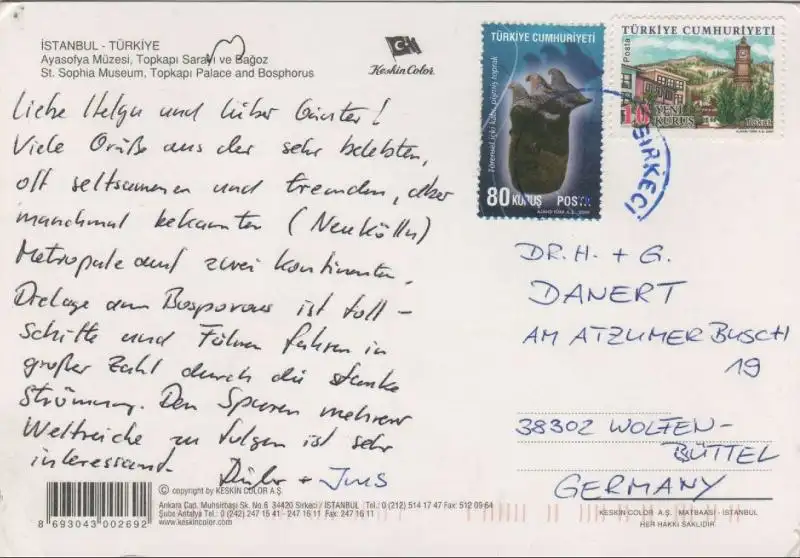 İSTANBUL - TÜRKİYE
Ayasofya Müzesi, Topkapı Sarayı ve Boğaz
St. Sophia Museum, Topkapı Palace and Bosphorus
Keskin Color
TÜRKİYE CUMHURİYETİ
Törensel içki kabı, pişmiş toprak
80 KURUŞ POSTA
AJANS TÜRK A.Ş. 2009
TÜRKİYE CUMHURİYETİ
Posta
10 YENİ KURUŞ
Tokat
SİRKECİ
Liebe Helga und lieber Günter!
Viele Grüße aus der sehr belebten,
oft seltsamen und fremden, aber
manchmal bekannten (Neukölln)
Metropole auf zwei Kontinenten.
Die Lage am Bosporus ist toll -
Schiffe und Fähren fahren in
großer Zahl durch die starke
Strömung. Den Spuren mehrerer
Weltreiche zu folgen ist sehr
interessant.
+ Jens
DR. H. + G.
DANERT
AM ATZUMER BUSCH
19
38302 WOLFEN-
BÜTTEL
GERMANY
© copyright by KESKİN COLOR A.Ş.
Ankara Cad. Muhsirbaşı Sk. No.6 34420 Sirkeci / İSTANBUL Tel.: 0 (212) 514 17 47 Fax: 512 09 64
Şube Antalya Tel.: 0 (242) 247 15 41 - 247 16 11 Fax: 247 16 11
www.keskincolor.com
8 693043 002692
KESKİN COLOR A.Ş. MATBAASI - İSTANBUL
HER HAKKI SAKLIDIR